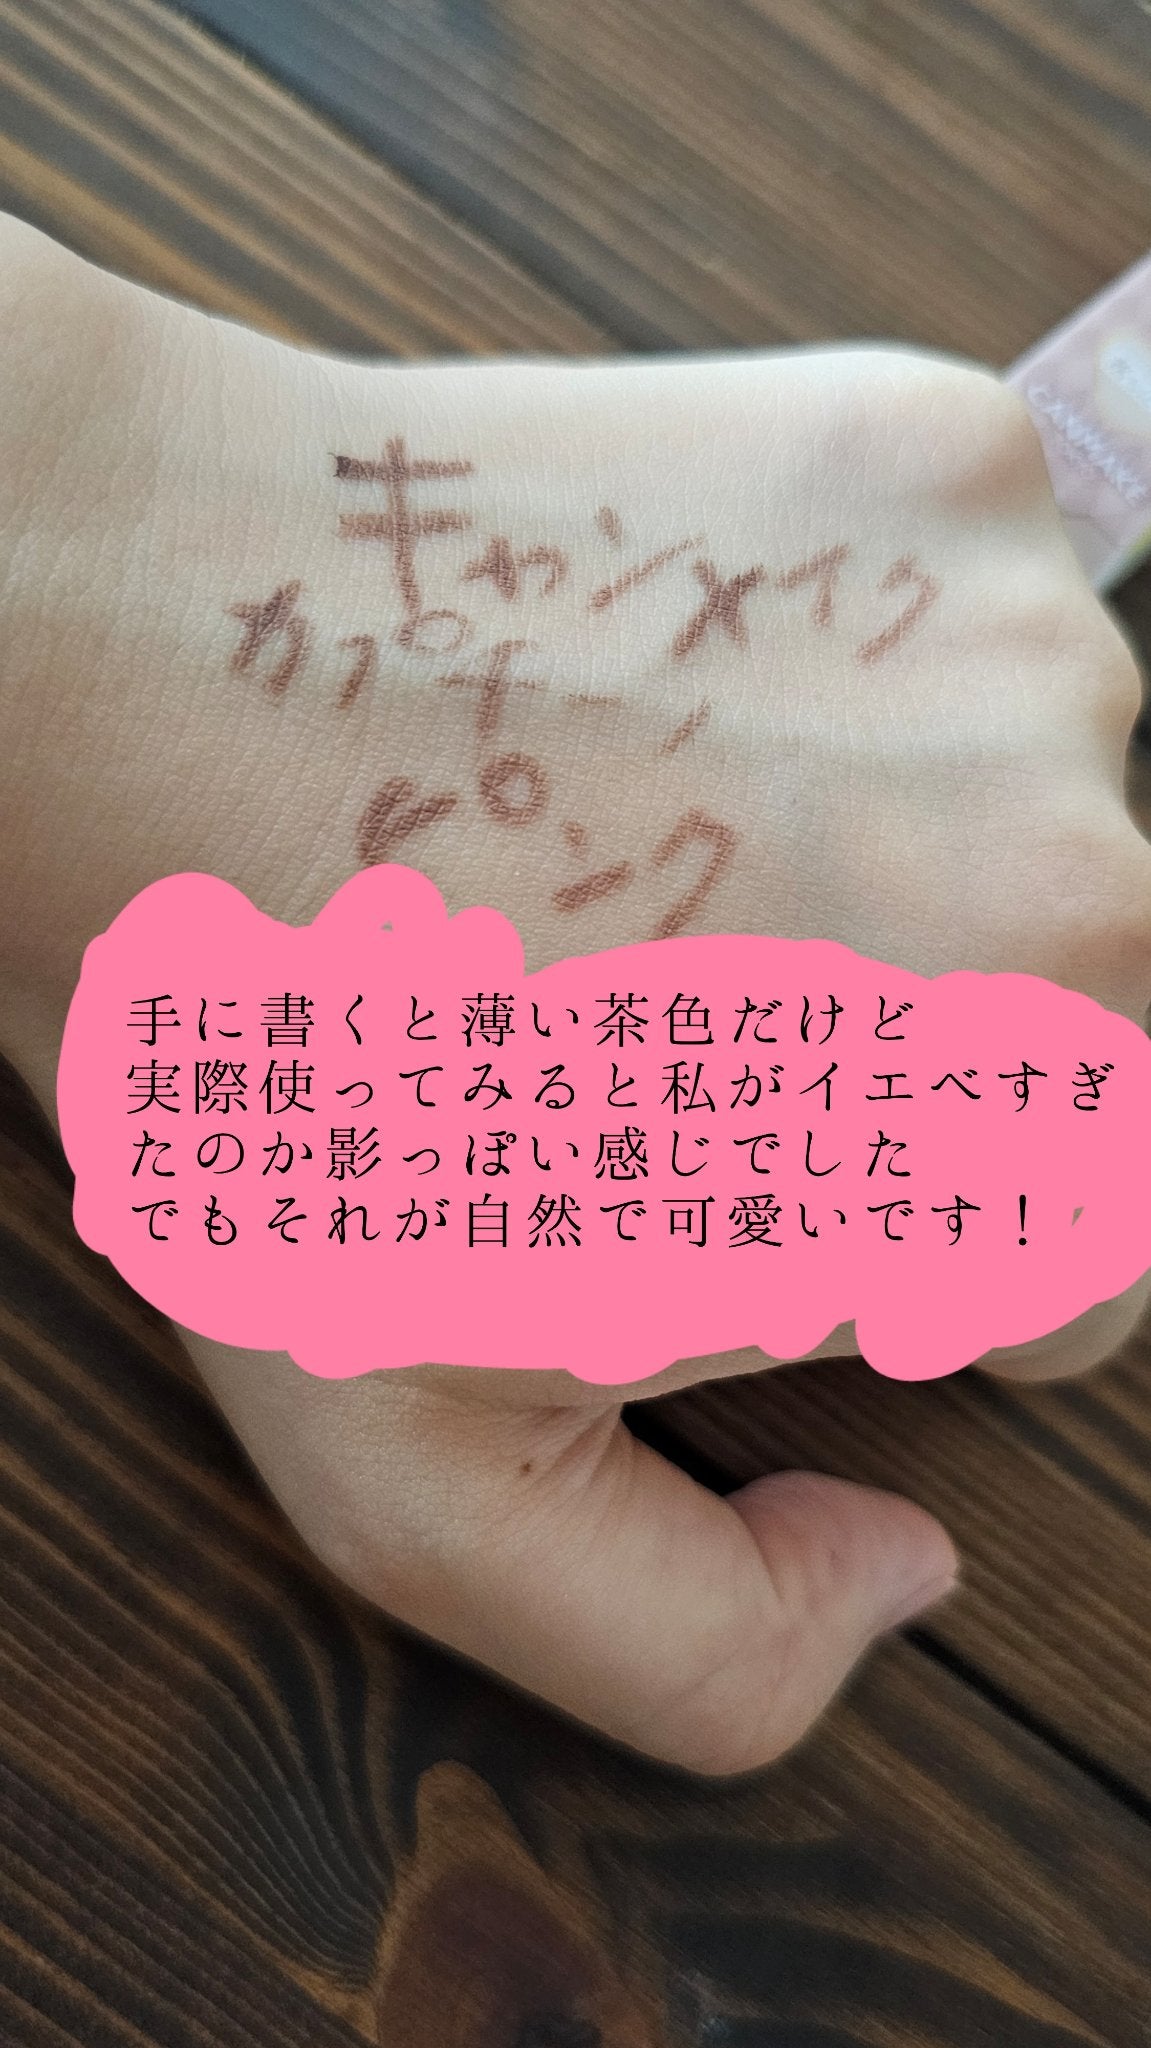 キャンメイク
カプチーノ
ピンク
CANMAKE
手に書くと薄い茶色だけど
実際使ってみると私がイエベすぎ
たのか影っぽい感じでした
でもそれが自然で可愛いです！